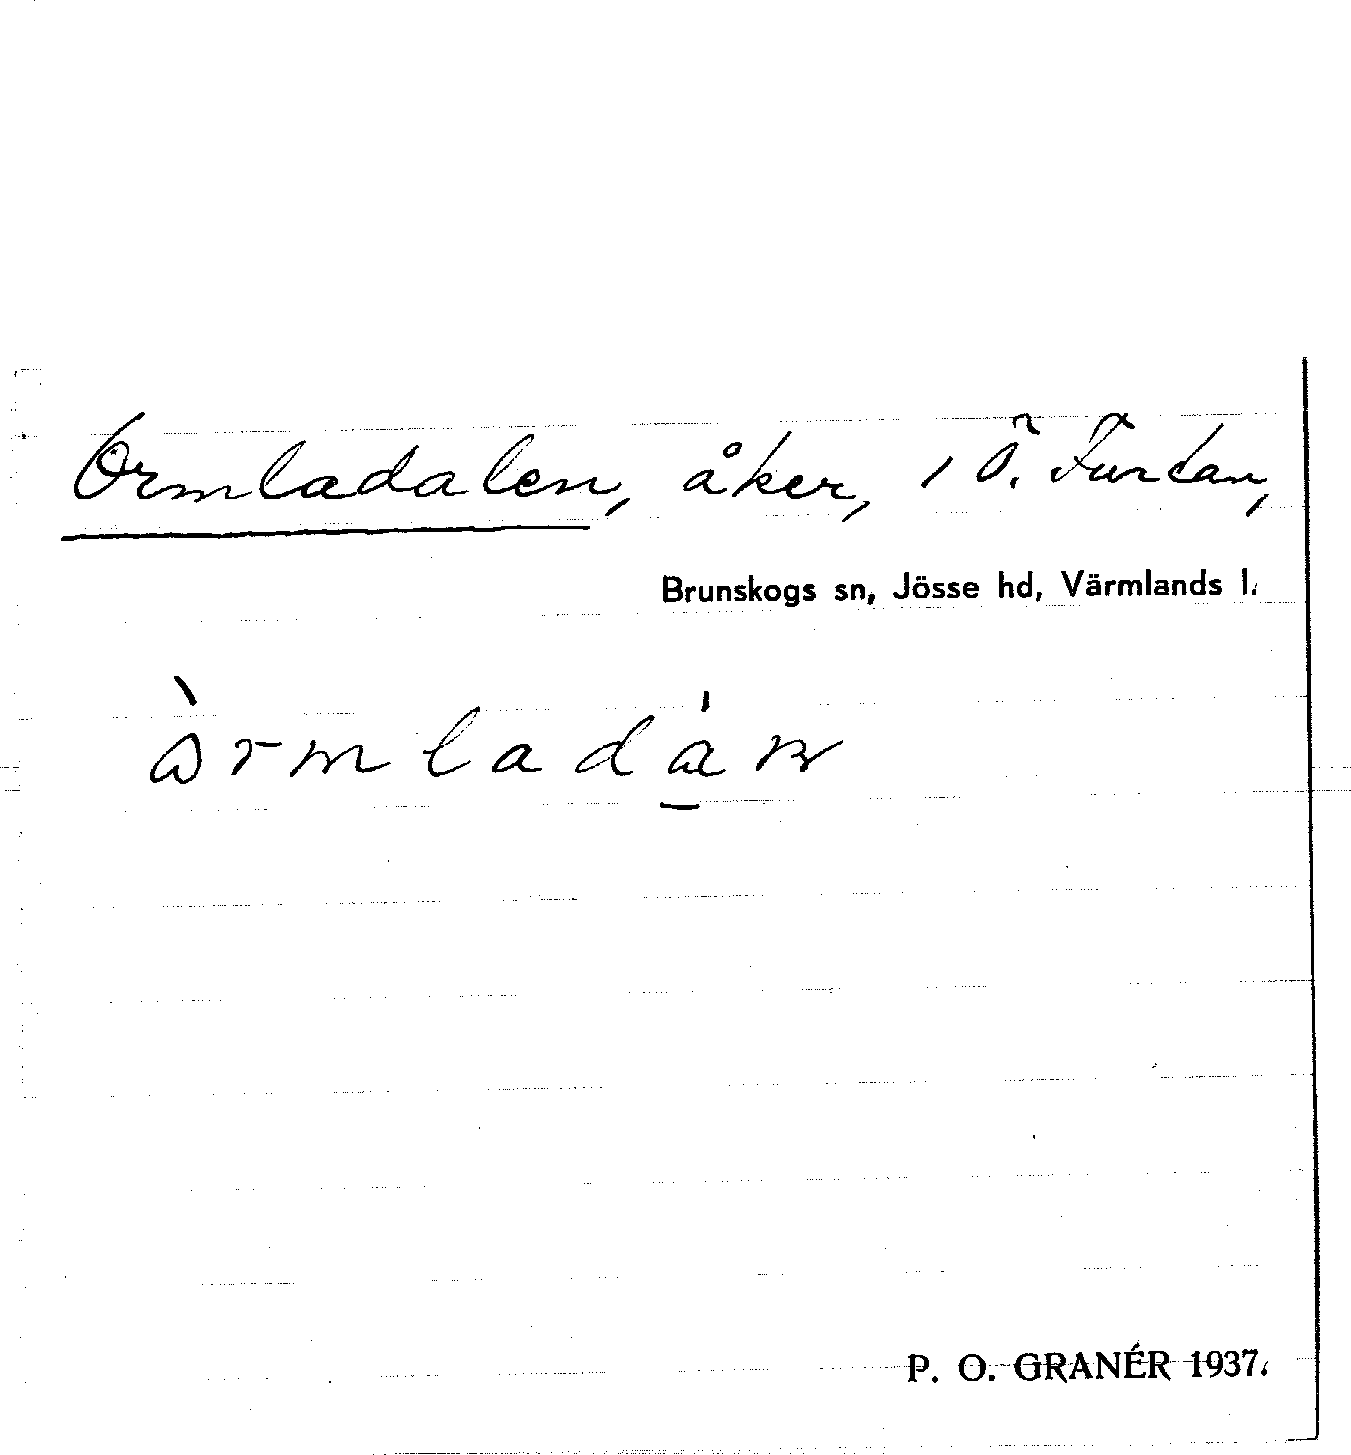 Ormladalen, åker, 1 Ö. Furtan,
Brunskogs sn, Jösse hd, Värmlands l.
P. O. GRANÉR 1937.